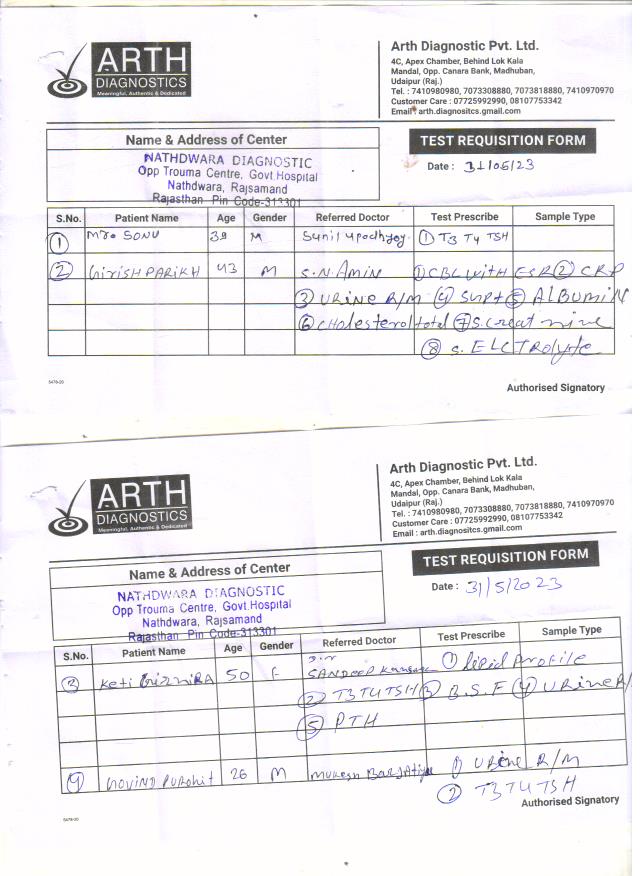 ARTH
DIAGNOSTICS
Meaningful, Authentic & Dedicated
Arth Diagnostic Pvt. Ltd.
4C, Apex Chamber, Behind Lok Kala
Mandal, Opp. Canara Bank, Madhuban,
Udaipur (Raj.)
Tel. : 7410980980, 7073308880, 7073818880, 7410970970
Customer Care : 07725992990, 08107753342
Email : arth.diagnositcs.gmail.com
Name & Address of Center
NATHDWARA DIAGNOSTIC
Opp Trouma Centre, Govt.Hospital
Nathdwara, Rajsamand
Rajasthan Pin Code-313301
TEST REQUISITION FORM
Date : 31/05/23
S.No. Patient Name Age Gender Referred Doctor Test Prescribe Sample Type
1 SONU 39 M Sunil Upodhyay 1 T3 T4 TSH
2 GIRISH PARIKH 43 M S.N.Amin 1 CBC WITH ESR 2 CRP
3 URINE R/M 4 SGPT 5 ALBUMIN
6 CHolesterol total 7 S.Creatinine
8 S. ELCTROlyte
5478-20
Authorised Signatory
ARTH
DIAGNOSTICS
Meaningful, Authentic & Dedicated
Arth Diagnostic Pvt. Ltd.
4C, Apex Chamber, Behind Lok Kala
Mandal, Opp. Canara Bank, Madhuban,
Udaipur (Raj.)
Tel. : 7410980980, 7073308880, 7073818880, 7410970970
Customer Care : 07725992990, 08107753342
Email : arth.diagnositcs.gmail.com
Name & Address of Center
NATHDWARA DIAGNOSTIC
Opp Trouma Centre, Govt.Hospital
Nathdwara, Rajsamand
Rajasthan Pin Code-313301
TEST REQUISITION FORM
Date : 31/5/2023
S.No. Patient Name Age Gender Referred Doctor Test Prescribe Sample Type
3 Keti 50 F SANDEEP 1 lipid profile
2 T3 T4 TSH 3 B.S.F 4 URINE R/
5 PTH
4 GOVIND PUROHIT 26 M MUKESH 1) URine R/M
2 T3 T4 TSH
Authorised Signatory
5478-20